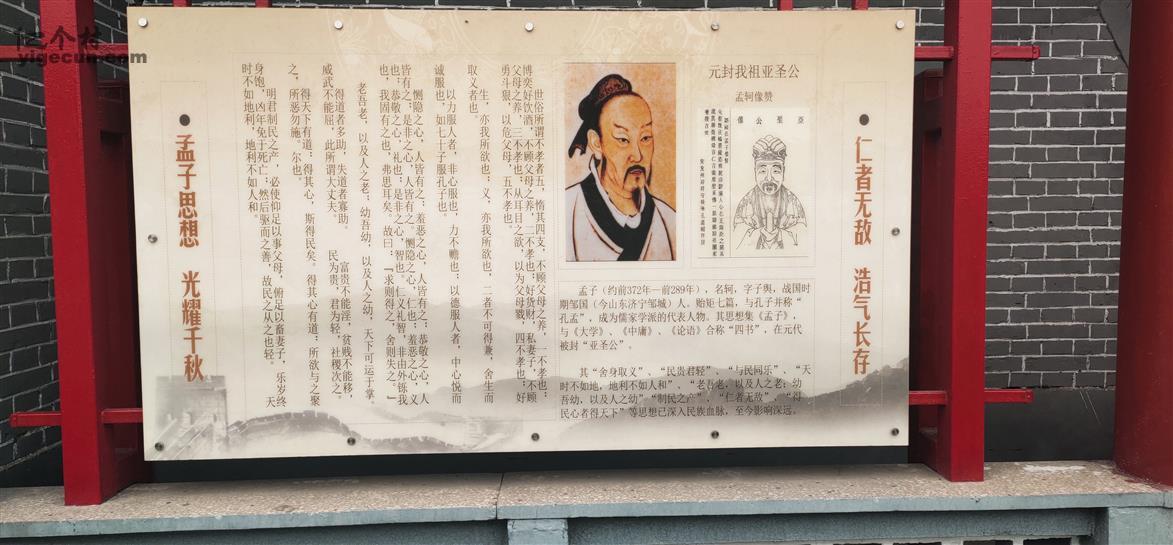 个村
yigecun.com
仁者无敌 浩气长存
元封我祖亚圣公
孟轲像赞
亞聖公像
孟子（约前372年—前289年），名轲，字子舆，战国时
期邹国（今山东济宁邹城）人。贻矩七篇，与孔子并称“
孔孟”，成为儒家学派的代表人物。其思想集《孟子》，
与《大学》、《中庸》、《论语》合称“四书”，在元代
被封“亚圣公”。
其“舍身取义”、“民贵君轻”、“与民同乐”、“天
时不如地，地利不如人和”、“老吾老，以及人之老；幼
吾幼，以及人之幼”“制民之产”、“仁者无敌”、“得
民心者得天下”等思想已深入民族血脉，至今影响深远。
世俗所谓不孝者五，惰其四支，不顾父母之养，一不孝也；
博奕好饮酒，不顾父母之养，二不孝也；好货财，私妻子，不顾
父母之养，三不孝也；从耳目之欲，以为父母戮，四不孝也；好
勇斗狠，以危父母，五不孝也。
生，亦我所欲也；义，亦我所欲也，二者不可得兼，舍生而
取义者也。
以力服人者，非心服也，力不赡也；以德服人者，中心悦而
诚服也，如七十子服孔子也。
恻隐之心，人皆有之；羞恶之心，人皆有之；恭敬之心，人
皆有之；是非之心，人皆有之。恻隐之心，仁也；羞恶之心，义
也；恭敬之心，礼也；是非之心，智也。仁义礼智，非由外铄我
也，我固有之也，弗思耳矣。故曰：“求则得之，舍则失之。”
老吾老，以及人之老；幼吾幼，以及人之幼，天下可运于掌。
得道者多助，失道者寡助。 富贵不能淫，贫贱不能移，
威武不能屈，此所谓大丈夫。 民为贵，君为轻，社稷次之。
得天下有道：得其心，斯得民矣。得其心有道：所欲与之聚
之，所恶勿施。尔也。
明君制民之产，必使仰足以事父母，俯足以畜妻子，乐岁终
身饱，凶年免于死亡；然后驱而之善，故民之从之也轻。 天
时不如地利，地利不如人和。
孟子思想 光耀千秋